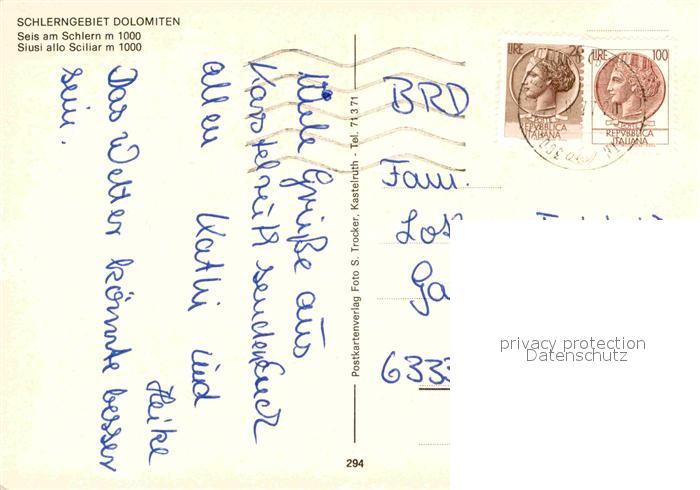 SCHLERNGEBIET DOLOMITEN
Seis am Schlern m 1000
Siusi allo Sciliar m 1000
Viele Grüße aus
Kastelruth sendet Euch
allen Kathi und
Heike
Das Wetter könnte besser
sein.
Postkartenverlag Foto S. Trocker, Kastelruth - Tel. 71371
294
LIRE 20
REPVBBLICA
ITALIANA
LIRE 100
REPVBBLICA
ITALIANA
BRD
Fam.
Lo
Ga
6333
privacy protection
Datenschutz